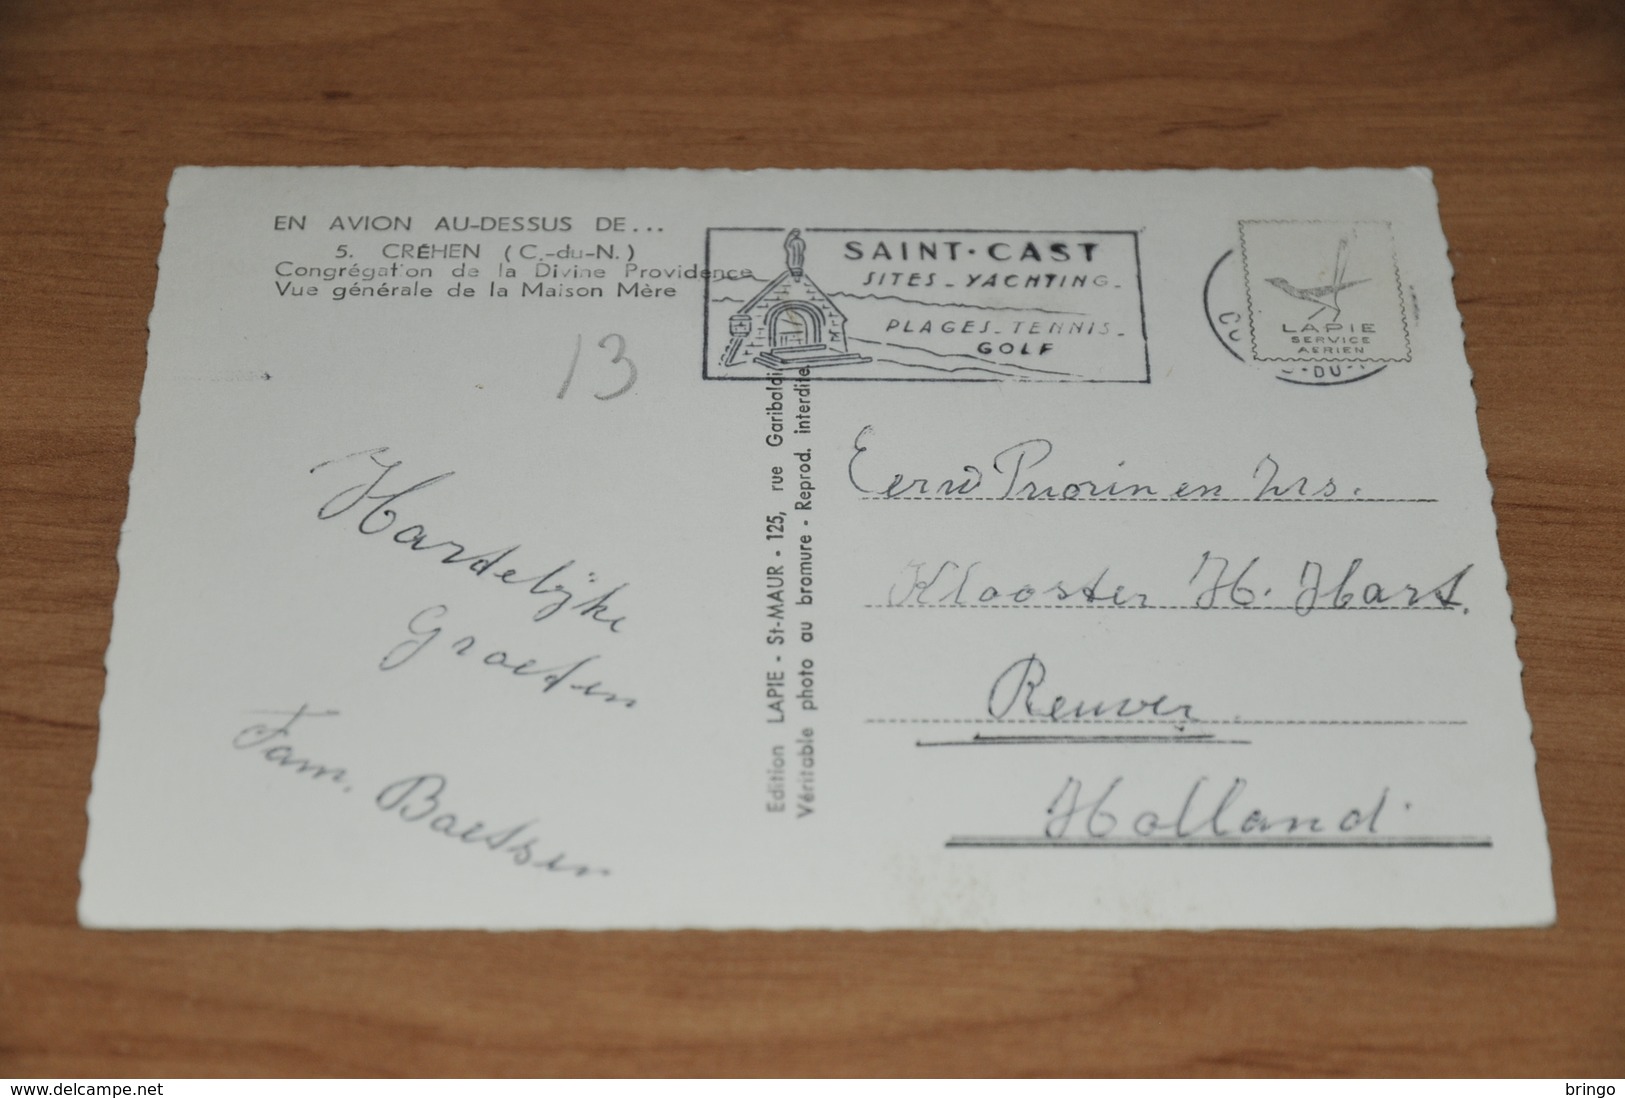 EN AVION AU-DESSUS DE...
5. CRÉHEN (C.-du-N.)
Congrégation de la Divine Providence
Vue générale de la Maison Mère
13
SAINT-CAST
SITES - YACHTING -
PLAGES - TENNIS -
GOLF
LAPIE
SERVICE
AERIEN
-DU-
Edition LAPIE - St-MAUR - 125, rue Garibaldi
Véritable photo au bromure - Reprod. interdite
Hartelijke
Groeten
Fam. Baetsen
Eerw Priorin en Zrs.
Klooster H. Hart.
Reuver
Holland
www.delcampe.net
bringo